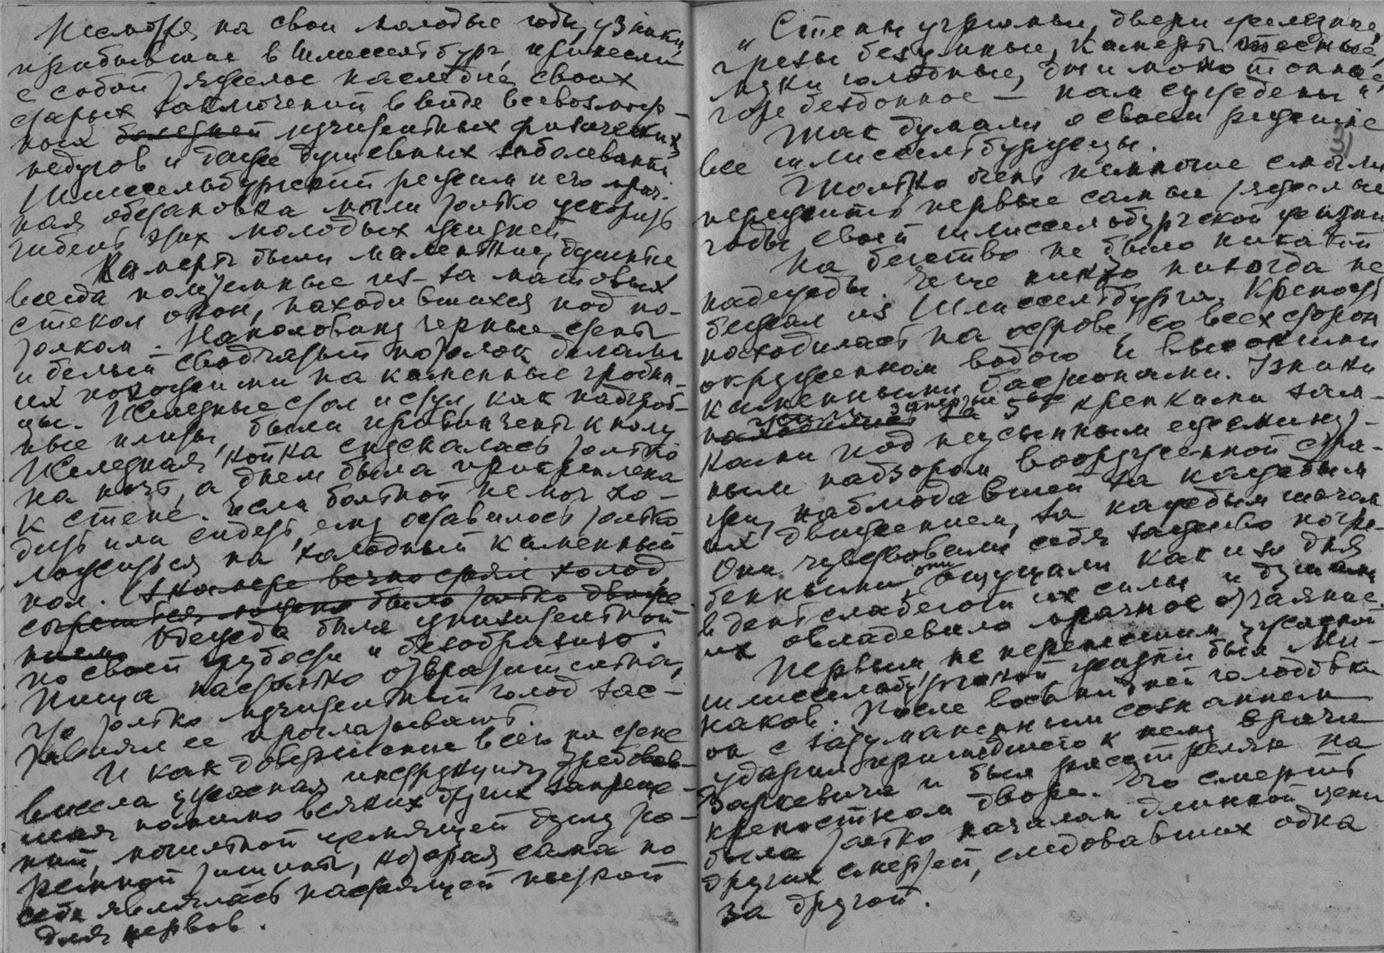 Несмотря на свои молодые годы, узники,
прибывшие в Шлиссельбург, принесли
с собой тяжелое наследие своих
старых заключений в виде всевозмож-
ных болезней мучительных физических
недугов и даже душевных заболеваний.
Шлиссельбургский режим и его мрач-
ная обстановка могли только ускорить
гибель этих молодых жизней.
Камеры были маленькие, душные
всегда полутемные из-за матовых
стекол окон, находившихся под по-
толком. Наполовину черные стены
и белый сводчатый потолок делали
их похожими на каменные гробни-
цы. Железные стол и стул, как надгроб-
ные плиты, были привинчены к полу.
Железная койка спускалась только
на ночь, а днем была прикреплена
к стене. Если больной не мог хо-
дить или сидеть, ему оставалось только
ложиться на холодный каменный
пол. В камере вечно стоял холод,
было только
Одежда была унизительной
по своей грубости и безобразию.
Пища настолько отвратительна,
что только мучительный голод зас-
тавлял ее проглатывать.
И как довершение всего на стене
висела ужасная инструкция, требовав-
шая помимо всяких других запреще-
ний, полной леденящей душу мо-
тишины, которая сама по
себе являлась настоящей пыткой
для нервов.
"Стены угрюмые, двери железные,
грезы безумные, камеры тесные,
муки голодные, дни монотонные,
горе бездонное — нам суждены".
3
Так думали о своем режиме
все шлиссельбуржцы.
Только очень немногие смогли
пережить первые самые тяжелые
годы своей шлиссельбургской жизни
На бегство не было никакой
надежды. Еще никто никогда не
бежал из Шлиссельбурга. Крепость
находилась на острове, со всех сторон
окруженном водою и высокими
каменными бастионами. Узники
находились за крепкими зам-
ками под неусыпным ежеминут-
ным надзором вооруженной стра-
жи, наблюдавшей за каждым
их движением, за каждым шагом
Они чувствовали себя заживо погре-
бенными, они ощущали как изо дня
в день слабеют их силы и душами
их овладевало мрачное отчаяние.
Первым не перенесшим ужасной
шлиссельбургской жизни был Ми-
наков. После восьмидней голодовки
он с затуманенным сознанием
ударил пришедшего к нему врача
Заркевича и был расстрелян на
крепостном дворе. Его смерть
была только началом длинной цепи
других смертей, следовавших одна
за другой.